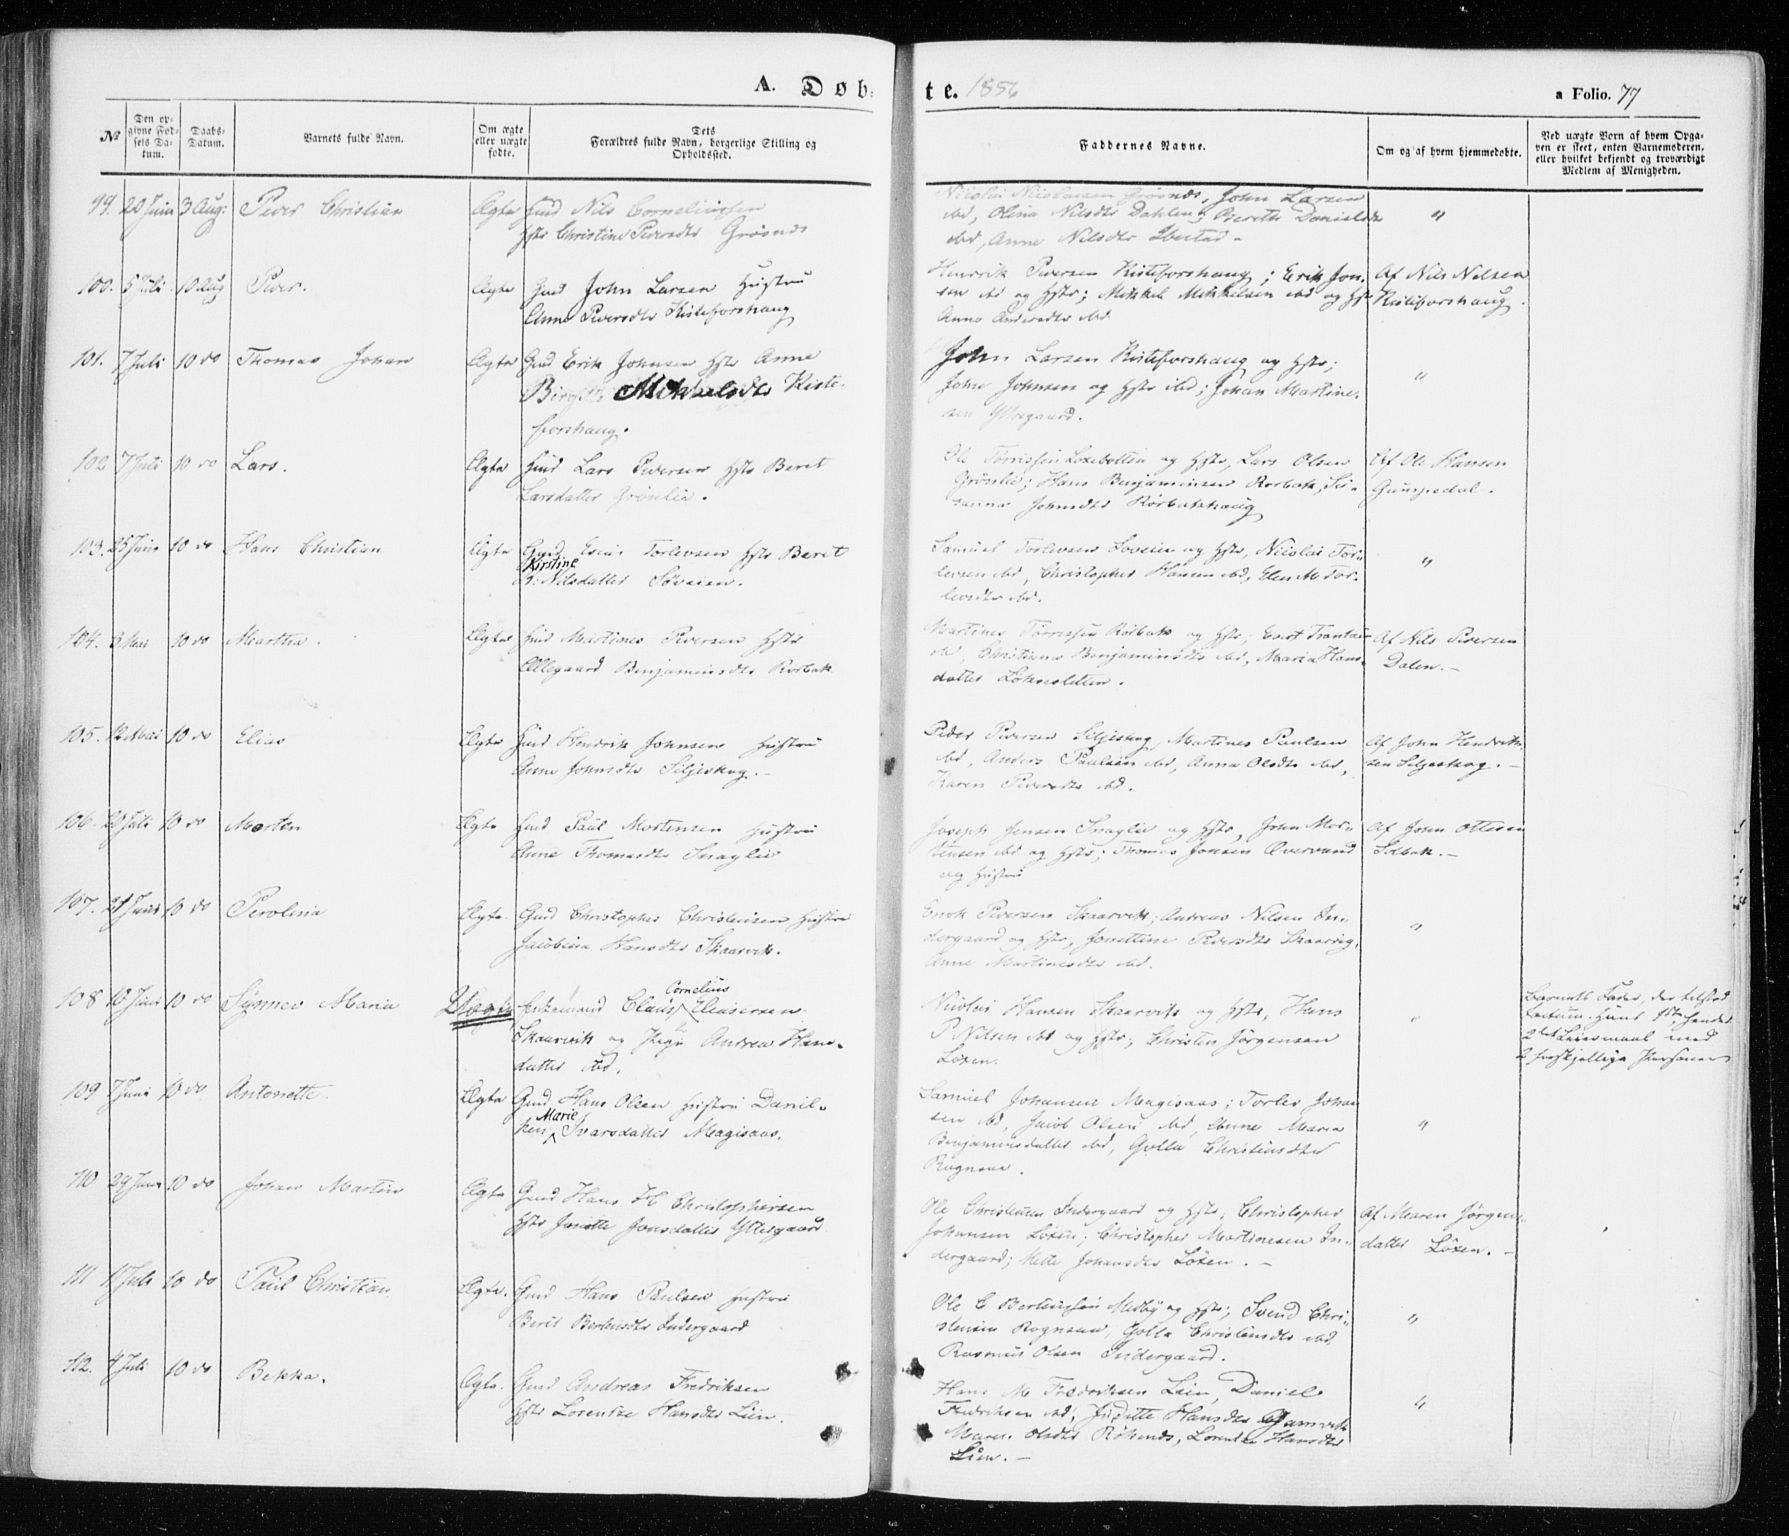 A. Døb-
te. 1856
a Folio. 77
№
Den op-
givne Fød-
sels Da-
tum.
Daabs-
Datum.
Barnets fulde Navn.
Om ægte
eller uægte
fødte.
Dets
Forældres fulde Navn, borgerlige Stilling og
Opholdssted.
Faddernes Navne.
Om og af hvem hjemmedøbte.
Ved uægte Børn af hvem Opga-
ven er skeet, enten Barnemoderen,
eller hvilket bekjendt og troværdigt
Medlem af Menigheden.
99. 20 Juni 3 Aug: Peder Christian Ægte Gmd Nils Corneliussen
Hstr Christine Pedersdtr Grøsnes
Nicolai Nicolaisen Grøsnes, John Larsen
ibd, Olina Nilsdtr Dahlen, Bereth Danielsdtr
ibd, Anne Nilsdtr Ibestad -
"
100. 5 Juli 10 Aug Peder. Ægte Gmd John Larsen Hustru
Anne Pedersdtr Kisteforshaug
Henrik Pedersen Kisteforshaug; Erik Jon-
sen ibd og Hstr; Mikkel Mikkelsen ibd og Hstr
Anna Andersdtr ibd.
Af Nils Nilsen
Kisteforshaug.
101. 7 Juli 10 do Thomas Johan Ægte Gmd Erik Johnsen Hstr Anne
Birgitte Mikkelsdtr Kiste-
forshaug.
John Larsen Kisteforshaug og Hstr;
John Johnsen og Hstr ibd; Johan Martine-
sen Ytregaard.
"
102 7 Juli 10 do Lars. Ægte Gmd Lars Pedersen Hstr Beret
Larsdatter Grønlie.
Ole Tørrissen Loxebotten og Hstr, Lars Olsen
Grønlie; Hans Benjaminsen Rørbak, Su-
sanna Johnsdtr Rørbakhaug
Af Ole Hansen
Gumpedal.
103. 25 Juni 10 do Hans Christian Ægte Gmd Enoc Torlevsen Hstr Beret
Kirstine
K: Nilsdatter Søveien.
Samuel Torlevsen Søveien og Hstr, Nicolai Tor-
levsen ibd, Christopher Hansen ibd, Elen M Tor-
levsdtr ibd.
"
104. 3 Mai 10 do Martha. Ægte Gmd Martines Pedersen Hstr
Allegaard Benjaminsdtr Rørbak
Martines Tørrissen Rørbak og Hstr;
ibd, Christiana Benjaminsdtr ibd, Maria Hans-
datter Løksesletten.
Af Nils Pedersen
Dalen. -
105. 12 Mai 10 do Elias Ægte Gmd Hendrik Johnsen Hustru
Anne Johnsdtr Seljeskog. -
Peder Pedersen Seljeskog, Martines Paulsen
ibd, Anders Paulsen ibd, Anna Olsdtr ibd,
Karen Pedersdtr ibd.
Af John Hendrik-
sen Seljeskog. -
106. 20 Juli 10 do Morten Ægte Gmd Paul Mortensen Hustru
Anne Thomasdtr Snaglie
Joseph Jensen Snaglie og Hstr, John Mor-
tensen ibd og Hstr; Thomas Jonsen Qvervand
og Hustru
Af John Ottesen
Solbak. -
107. 21 Juni 10 do Perolina Ægte. Gmd Christopher Christensen Hustru
Jacobina Hansdtr Skaarvik.
Enok Pedersen Skaarvik; Andreas Nilsen In-
dergaard og Hstr, Jonettine Pedersdtr Skaarvig,
Anne Martinesdtr ibd.
"
108 10 Juni 10 do Synnev Maria Uægte Enkemand Claus Cornelius Eliasersen
Skaarvik og Pige Andrea Hans-
datter ibd.
Nicolai Hansen Skaarvik og Hstr, Hans
P Nilsen ibd og Hstr; Christen Jørgensen
Løxen.
"
Barnets Fader, der tilstod
Factum. Hans 1ste hendes
2det Leiermaal med
2 forskjellige Personer
109 7 Juni 10 do Antonette. Ægte Gmd Hans Olsen Hustru Daniel-
Marie
ken Ivarsdatter Mægisaas.
Samuel Johansen Mægisaas; Torlev Johan-
sen ibd, Jacob Olsen ibd, Anne Maria
Benjaminsdatter ibd, Golla Christensdtr
Rognsaa.
"
110 29 Juni 10 do Johan Martin Ægte Gmd Hans H Christophersen
Hstr Jonette Jonsdatter Yttergaard
Ole Christensen Indergaard og Hstr; Christopher
Johansen Løxen; Christopher Martinesen In-
dergaard; Mette Johansdtr Løxen. -
Af Maren Jørgens-
datter Løxen. -
111 11 Juli 10 do Paul Christian Ægte. Gmd Hans Paulsen Hustru
Berit Berteusdtr Indergaard
Ole C Berteussen Medby og Hstr; Svend Chri-
stensen Rognsaa, Golla Christensdtr ibd,
Rasmus Olsen Indergaard.
"
112. 4 Juli 10 do Bekka. Ægte. Gmd Andreas Fredriksen
Hstr Lorentze Hansdtr Lien.
Hans M Fredriksen Lien, Daniel
Fredriksen ibd, Juditte Hansdtr Gamvik
Maren Olsdtr Røkenes, Lorentze Hansdtr
Lien. -
"